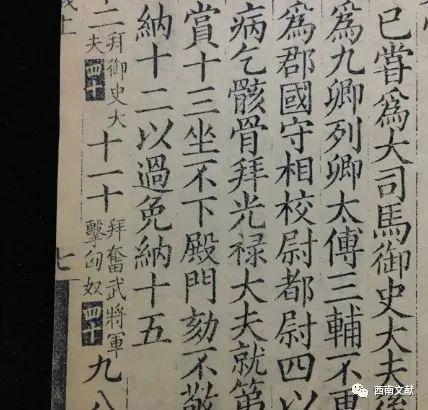 已嘗爲大司馬御史大夫後
爲九卿列卿太傅三輔不再
爲郡國守相校尉都尉四以
病乞骸骨拜光祿大夫就第
賞十三坐不下殿門劾不敬
納十二以過免納十五
二拜御史大夫四十十一十拜奮武將軍擊匈奴四十九八
上
七
西南文献